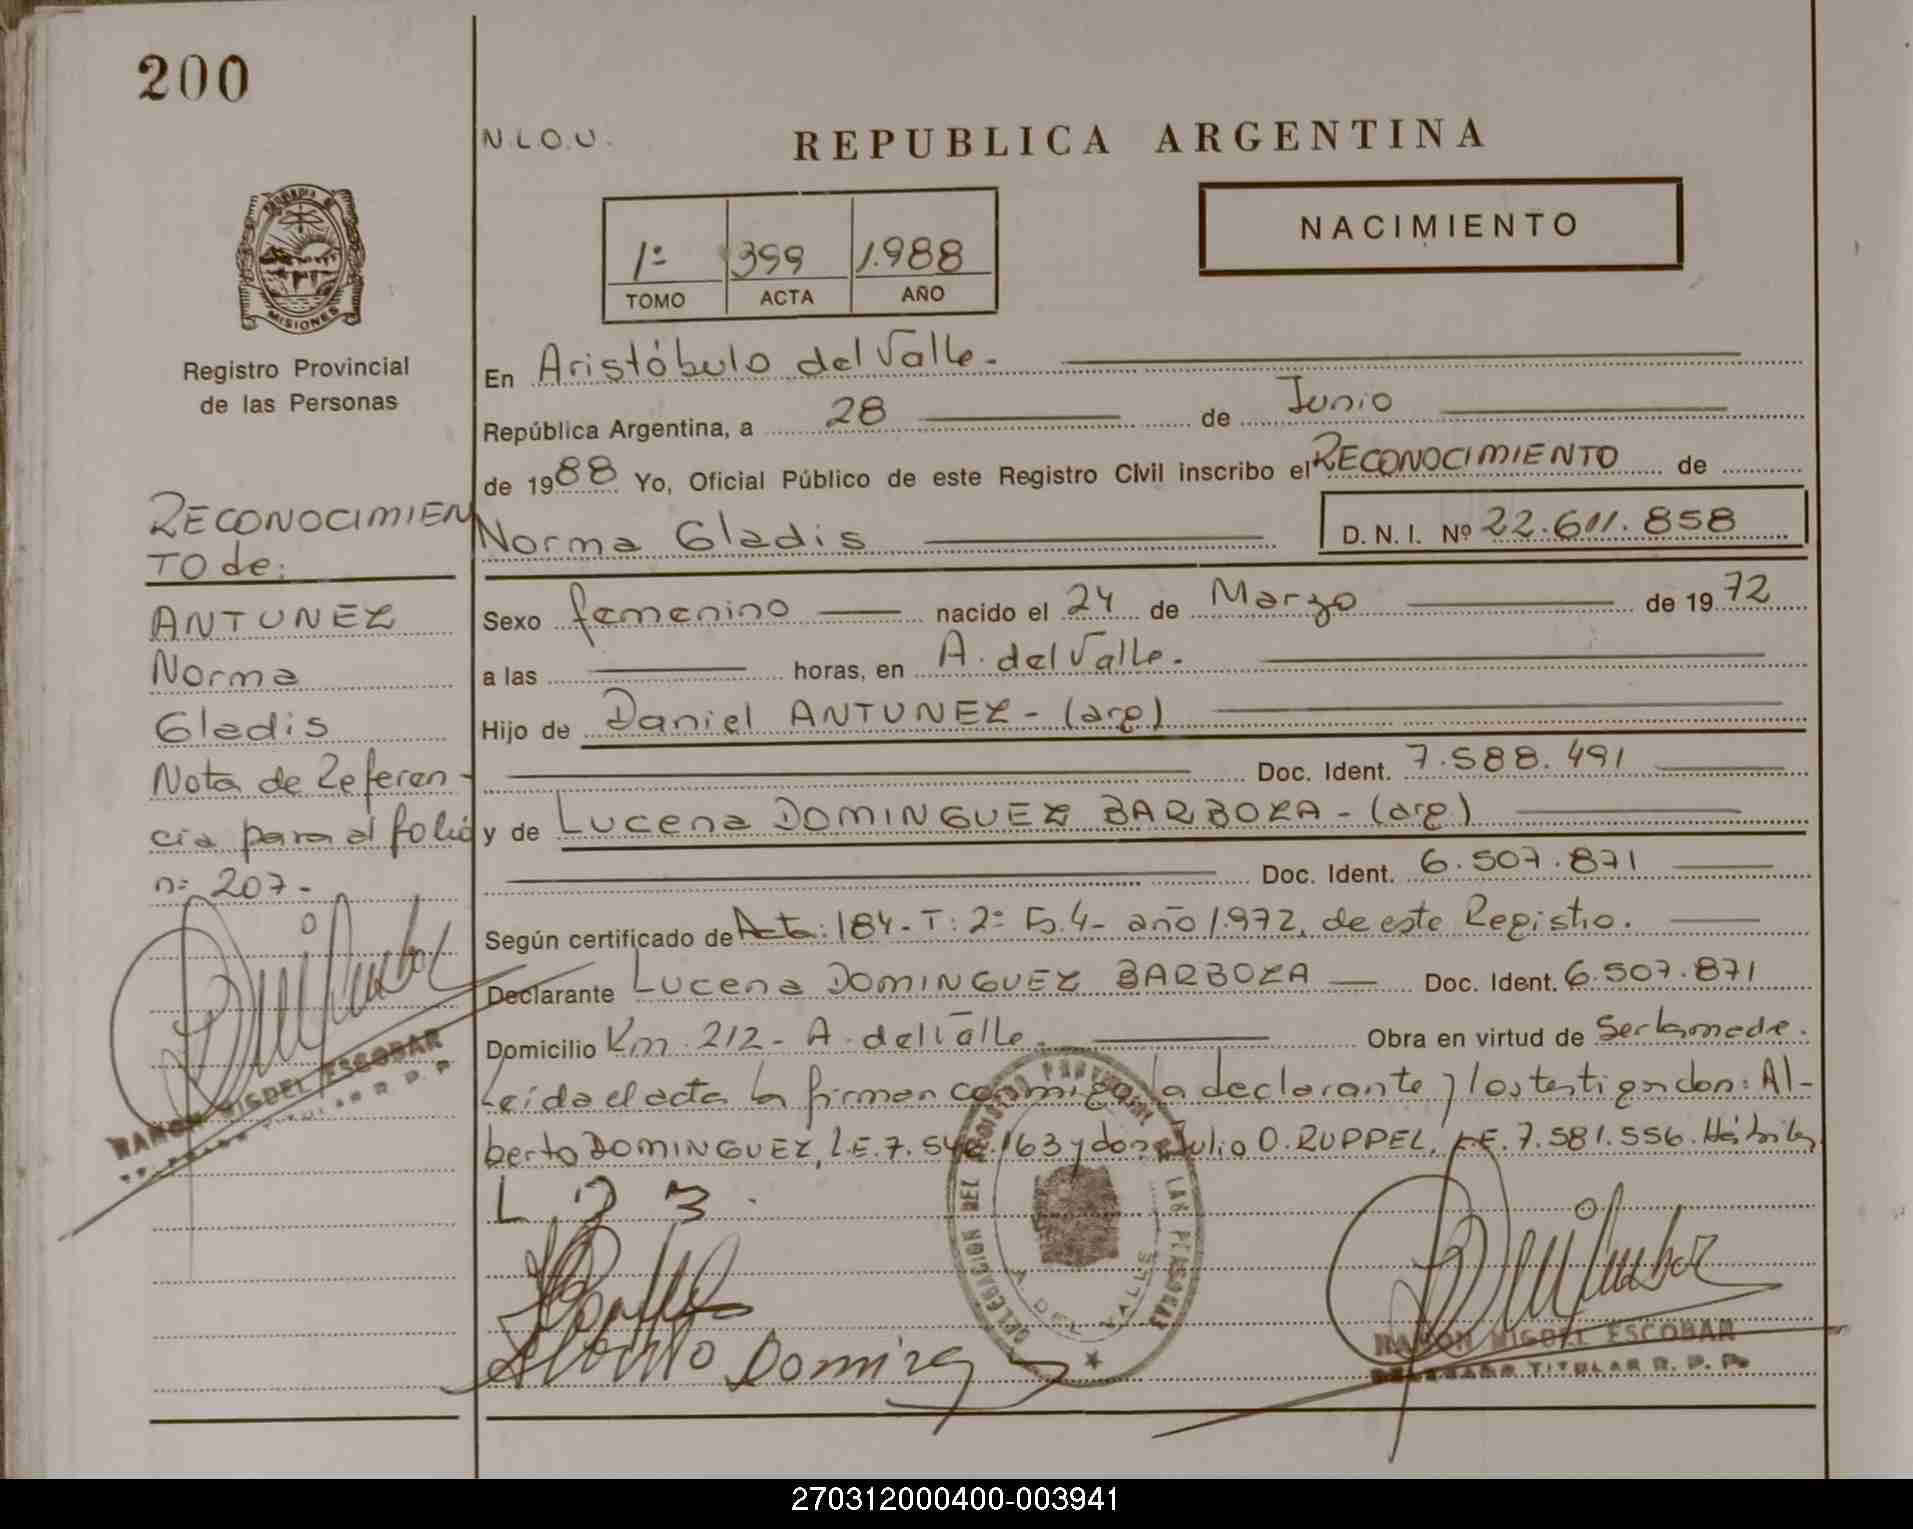 200
N.L.O.U.
REPUBLICA ARGENTINA
1º 399 1.988
TOMO ACTA AÑO
NACIMIENTO
MISIONES
Registro Provincial
de las Personas
RECONOCIMIEN
TO de:
ANTUNEZ
Norma
Gladis
Nota de Referen-
cia para el folio
nº 207-
RAMON MIGDEL ESCOBAR
En Aristóbulo del Valle.
República Argentina, a 28 de Junio
de 1988 Yo, Oficial Público de este Registro Civil inscribo el RECONOCIMIENTO de
Norma Gladis D. N. I. Nº 22.611.858
Sexo femenino nacido el 24 de Marzo de 1972
a las horas, en A. del Valle.
Hijo de Daniel ANTUNEZ - (arg)
Doc. Ident. 7.588.491
y de Lucena DOMINGUEZ BARBOZA - (arg)
Doc. Ident. 6.507.871
Según certificado de Acta: 184- T: 2º F. 4- año 1.972, de este Registro.
Declarante Lucena DOMINGUEZ BARBOZA Doc. Ident. 6.507.871
Domicilio Km. 212- A. del Valle. Obra en virtud de Ser la madre.
Leída el acta la firman conmigo la declarante y los testigos don: Al-
berto DOMINGUEZ, L.E. 7. 163 y don Julio O. RUPPEL, L.E. 7.581.556. Hábiles
DELEGACION DEL REGISTRO PROVINCIAL DE LAS PERSONAS
A. DEL VALLE
RAMON MIGDEL ESCOBAR
DELEGADO TITULAR R. P. P.
270312000400-003941